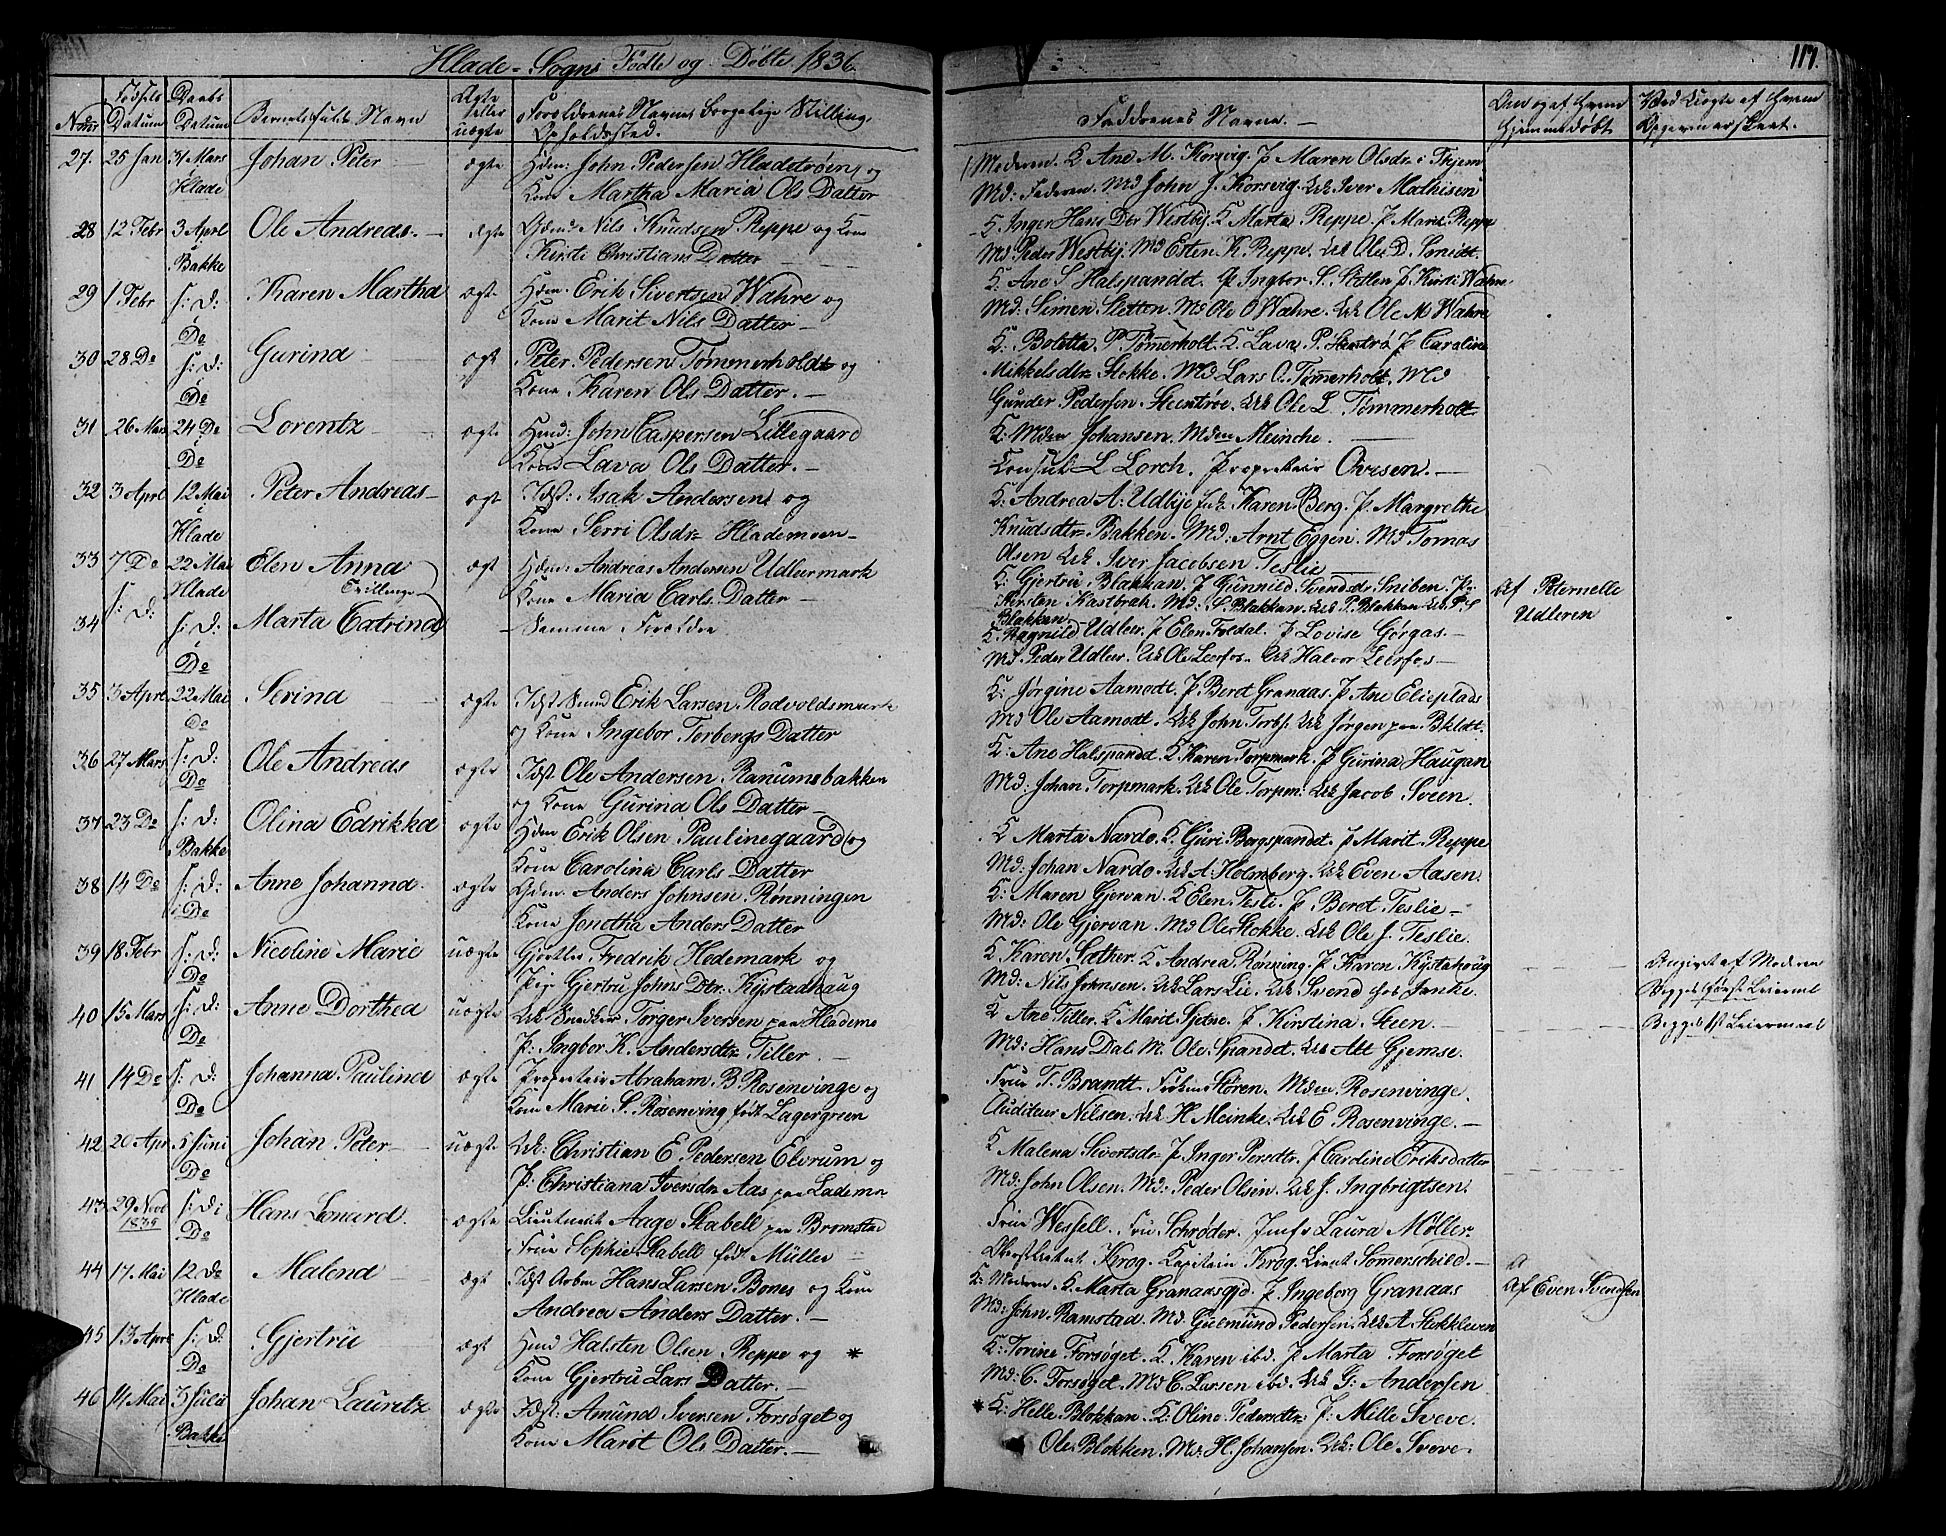 Hlade - Sogns Födte og Döbte 1836.
117.
Nome Födsels Datum Daabs Datum Barnets fulde Navn Ægte eller uægte Forældrenes Navne borgelige Stilling, Opholdssted.
Faddrenes Navne. Om og af hvem hjemmedöbt
27. 25 Jan 31 Mars Johan Peter ægte Hdm: John Pedersen Hladetröen og
Hlade Kone Martha Maria Ols Datter
1/ Moderen. K. Ane M. Korsvig. P Maren Olsdr i Thjem
Md: Faderen. Md John J. Korsvig. Uk Iver Mathisen
28 12 Febr 3 Aprl Ole Andreas. ægte Gdm: Nils Knudsen Reppe og Kone
i Bakke Kirsti Christians Datter
K Inger Hans Dtr Westbÿ. K Marta Reppe P Marit Reppe
Md Peder Westbÿ. Md Esten K. Reppe. Uk Ole D. Smidt.
29 1 Febr s: d: Karen Martha ægte Hdm. Erik Sivertsen Wahre og
i Do Kone Marit Nils Datter
K. Ane S Halspandet. P Ingbor S. Sletten P Kirsti Wahre
Md: Simen Sletten. Md Ole O Wahre. Uk Ole M Wahre
30 28 Do s: d: Gurina ægte Peter Pedersen Tømmerholdt og
i Do Kone Karen Ols Datter.
K: Boletta P Tømerholt. K. Lava P. Stentrö P Caroline
Mikkelsdtr Stokke. Md Lars O. Tømerholt. Md
Gunder Pedersen. Steentröe. Uk Ole L. Tømmerholt
31 26 Mars 24 Do Lorentz ægte Hmd: John Caspersen Lillegaard
i Do Kone Lava Ols Datter.
K: Mdm Johansen. Mdm Meincke.
Konsul L Lorch. Propretair Ovesen.
32 3 Aprl 12 Mai Peter Andreas ægte Idst: Isak Andersen og
i Hlade Kone Serri Olsdr Hlademoen
K: Andrea A: Udbye Karen Berg. P. Margrethe
Knudsdtr Bakken. Md: Arnt Eggen. Md Tomas
Olsen Uk Iver Jacobsen Teslie
33 7 Do 22 Mai Elen Anna ægt Hdm: Andreas Andersen Udleermark
Hlade Tvillinge Kone Maria Carls Datter
K. Gjertru Blakkan. P Gunnild Svendsdr Sniben. P:
Kirsten Kastbrak. Md: S. Blakkan. Uk P. Blakkan Uk P. S
Blakkan. Af Peternelle Udleren
34 s: d: s: d: Marta Catrina Samme Forældre
i Do
K. Ragnild Udleer. P Elen Foldal. P Lovise Görgas.
Md. Peder Udleer. Uk Ole Leerfos. Uk Halvor Leerfos
35 3 Aprl 22 Mai Serina ægte Idst Smed Erik Larsen Rodvoldsmark
Do og Kone Ingebor Torbergs Datter
K: Jörgine Aamodt. P Beret Granaas. P Ane Elieplads
Md Ole Aamodt. Uk John Torbs. Uk Jörgen paa Bkldt.
36 27 Mars s: d: Ole Andreas ægte Idst Ole Andersen. Ranumsbakken
Do og Kone Gurina Ols Datter
K: Ane Halspandt. K. Karen Torpmark. P Gurina Haugan
Md: Johan Torpmark. Uk Ole Torpm. Uk Jacob Sveen.
37 23 Do s: d: Olina Edrikka ægte Hdm Erik Olsen Paulinegaard og
Bakke Kone Carolina Carls Datter
K Marta Nardo. K. Guri Bergspandet. P Marit Reppe
Md: Johan Nardo. Uk A. Holmberg. Uk Even Aasen.
38 14 Do s: d: Anne Johanna. ægte Gdm. Anders Johnsen Rønningen
i Do Kone Jonetha Anders Datter
K: Maren Gjervan. K Elen Tesli. P Beret Teslie
Md: Ole Gjervan. Md Ole Stokke. Uk Ole J. Teslie.
39 18 Febr s: d: Nicoline Marie uægte Gjørtler Fredrik Hedemark og
Do Pige Gjertru Johns Dtr. Kystadhaug
K Karen Sæther. K Andrea Rønning. P Karen Kystahaug
Md: Nils Johnsen. Uk Lars Lie. Uk Svend Janke.
Angivet af Moderen
Begges förste Leierml
40 15 Mars s: d: Anne Dorthea uægte Uk Snedker Torger Iversen paa Hlademo
Do P: Ingbor K. Andersdtr Tiller.
K Ane Tiller. K Marit Sjetne. P Kirstina Steen.
Md: Hans Dal. M. Ole Spandet. Uk Alt Gjemse.
Begges 1st Leiermaal
41 14 Do s: d: Johanna Paulina ægte Propretair Abraham. B. Rosenvinge og
Do Kone Marie S. Rosenving født Lagergreen
Frue T. Brandt. Frøken Støren. Mdm Rosenvinge.
Auditeur Nilsen. Uk H Meinke. Uk E. Rosenvinge.
42 20 Apr 5 Juni Johan Peter uægte Uk: Christian E Pedersen Elvrum og
Do P: Christiana Iversdr Aas paa Lademo
K Malena Sivertsdr P Inger Persdtr. P Caroline Eriksdatter
Md: John Olsen. Md: Peder Olsen. Uk J. Ingbrigtsen.
43 29 Nov 1835 s: d: Hans Lenard. ægte Lieutenant Aage Skabell paa Bromstad
Do Frue Sophie Skabell født Müller
Frue Wessell. Fru Schrøder. Jmfr Laura Møller
Oberstlietnt Krog. Kapitain Krog. Lieut Somerschild.
44 17 Mai 12 Do Malena ægt Idst Arbm Hans Larsen Bones og Kone
Hlade Andrea Anders Datter.
K: Moderen. K. Marta Granaasgjd. P Ingeborg Granaas
Md: John Ramstad. Md. Gulmund Pedersen. Uk A Stokkleven
Af Even Svendsen
45 13 Aprl s: d: Gjertru ægt Hmd Halsten Olsen Reppe og *
Do Kone Gjertru Lars Datter.
K: Torine Forsøget. K. Karen ibd. P Marta Forsøget
Md: C. Forsøget. Md C. Larsen ibd. Uk G. Andersen
46 14 Mai 3 Julii Johan Lauritz ægte Idst: Amund Iversen Forsøget og
Bakke Kone Marit Ols Datter.
* K: Helle Blokkan. K. Oline Pedersdtr P: Mille Sveve.
Ole Blokken. Md: H. Johansen. Uk: Ole Sveve.